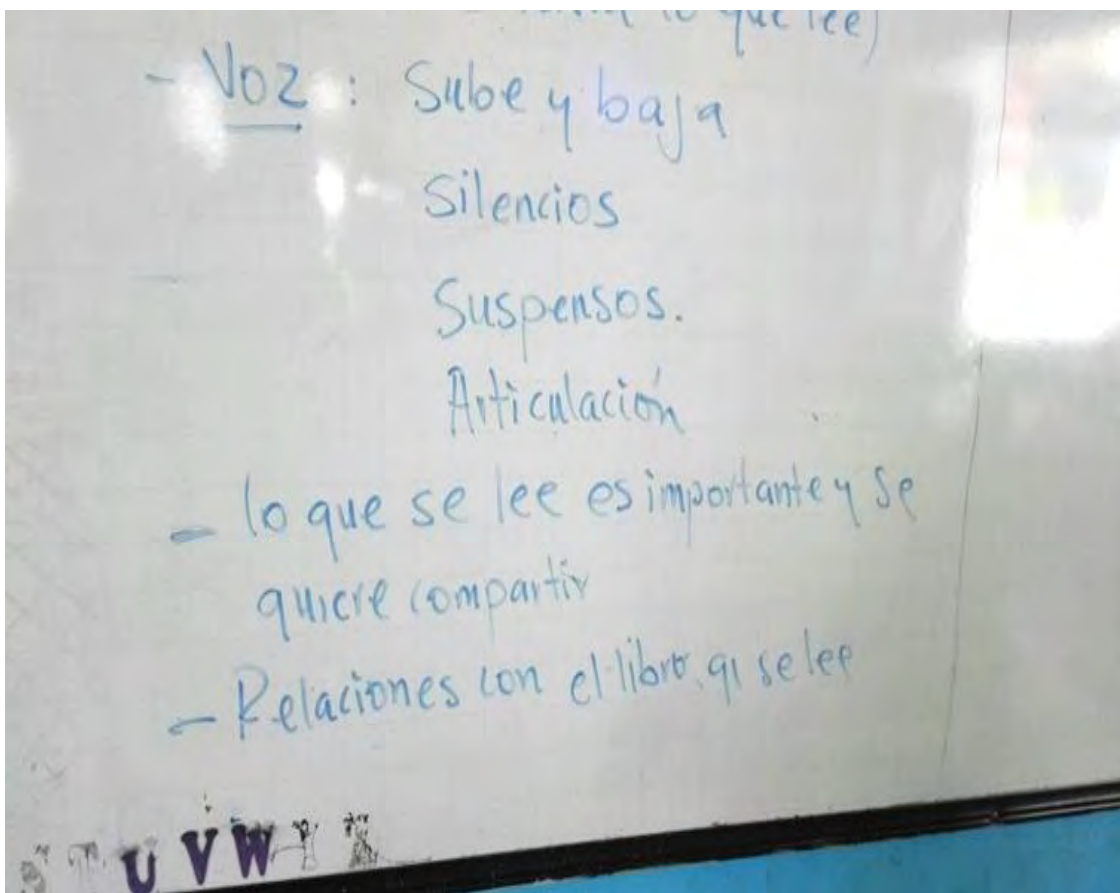 lo que lee)
- Voz : Sube y baja
Silencios
Suspensos.
Articulación
- lo que se lee es importante y se
quiere compartir
- Relaciones con el libro. q se lee
U V W